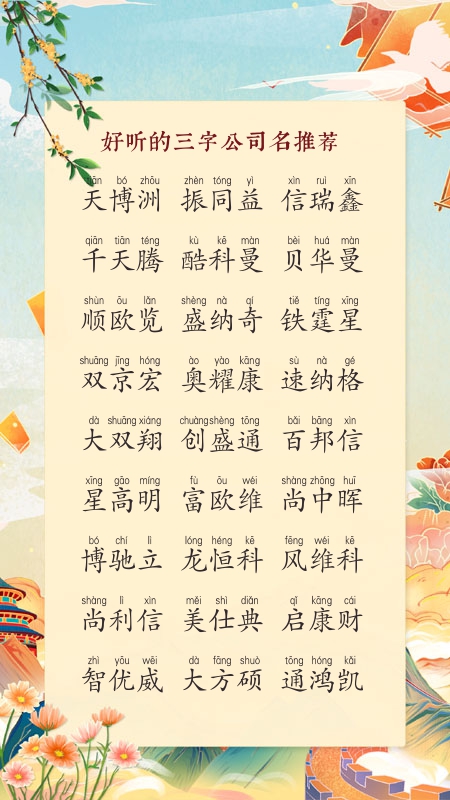 好听的三字公司名推荐
tiān bó zhōu zhèn tóng yì xìn ruì xīn
天博洲 振同益 信瑞鑫
qiān tiān téng kù kē màn bèi huá màn
千天腾 酷科曼 贝华曼
shùn ōu lǎn shèng nà qí tiě tíng xīng
顺欧览 盛纳奇 铁霆星
shuāng jīng hóng ào yào kāng sù nà gé
双京宏 奥耀康 速纳格
dà shuāng xiáng chuàng shèng tōng bǎi bāng xìn
大双翔 创盛通 百邦信
xīng gāo míng fù ōu wéi shàng zhōng huī
星高明 富欧维 尚中晖
bó chí lì lóng héng kē fēng wéi kē
博驰立 龙恒科 风维科
shàng lì xìn měi shì diǎn qǐ kāng cái
尚利信 美仕典 启康财
zhì yōu wēi dà fāng shuò tōng hóng kǎi
智优威 大方硕 通鸿凯